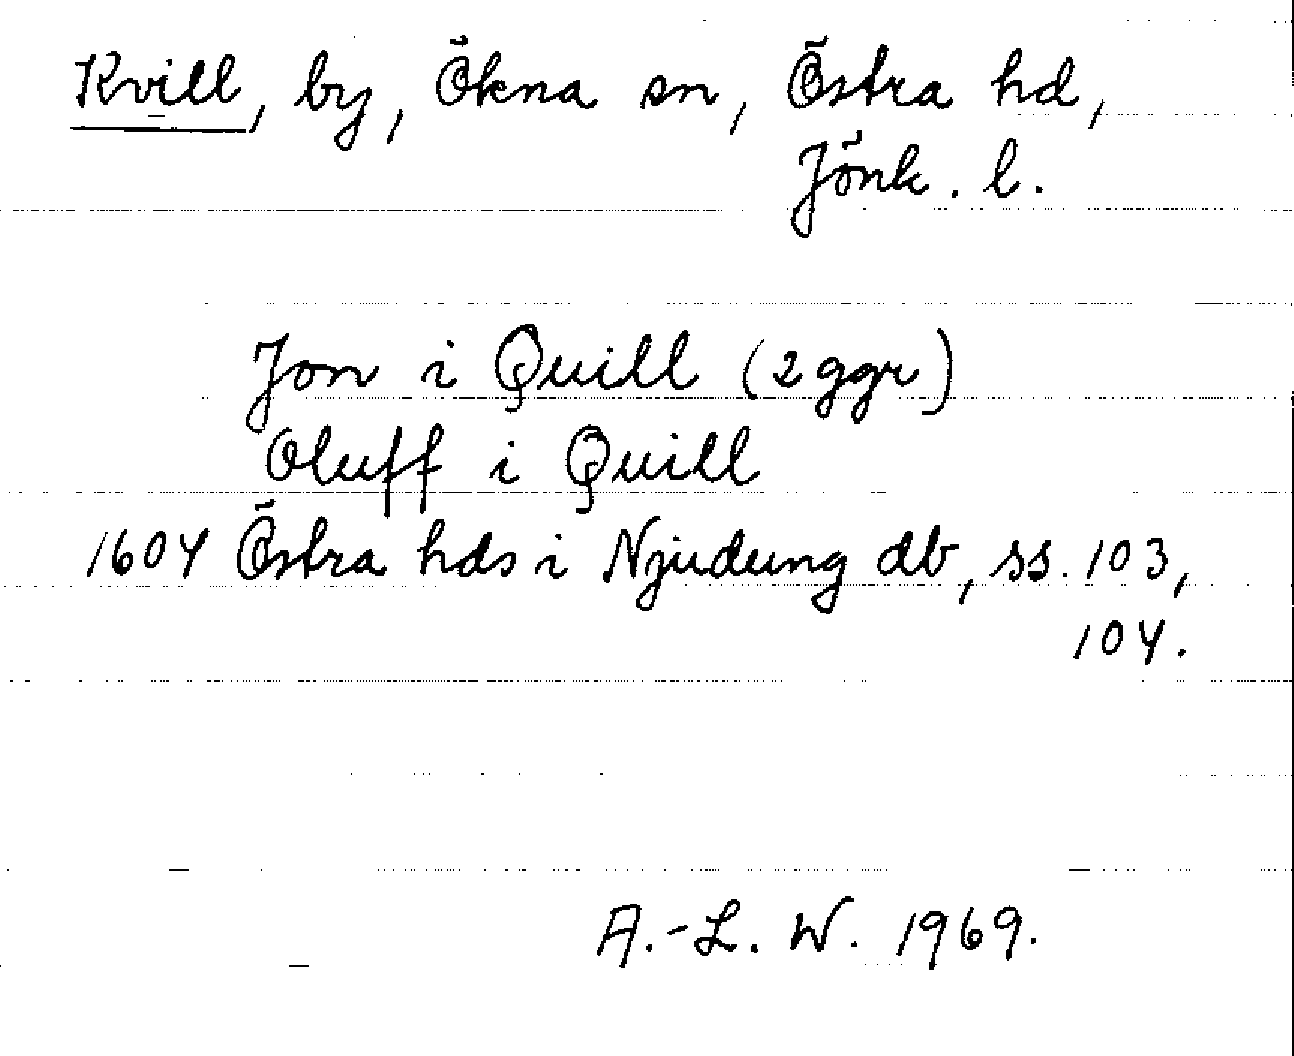 Kvill, by, Ökna sn, Östra hd,
Jönk. l.
Jon i Quill (2 ggr)
Oluff i Quill
1604 Östra hds i Njudung db, ss. 103,
104.
A.-L. W. 1969.